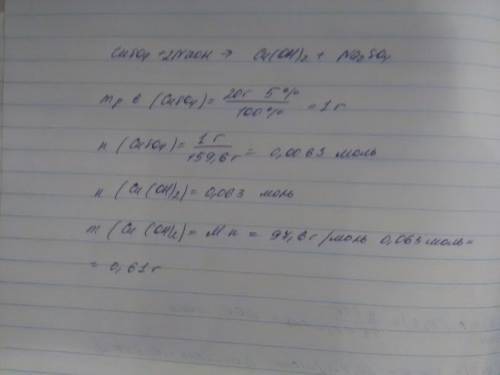 CuSO₄ + 2NaOH → Cu(OH)₂ + Na₂SO₄
mр.в (CuSO₄) = 20г 5% / 100% = 1 г
n (CuSO₄) = 1 г / 159,6 г = 0,0063 моль
n (Cu(OH)₂) = 0,063 моль
m (Cu(OH)₂) = M n = 97,6 г/моль 0,063 моль =
= 0,61 г